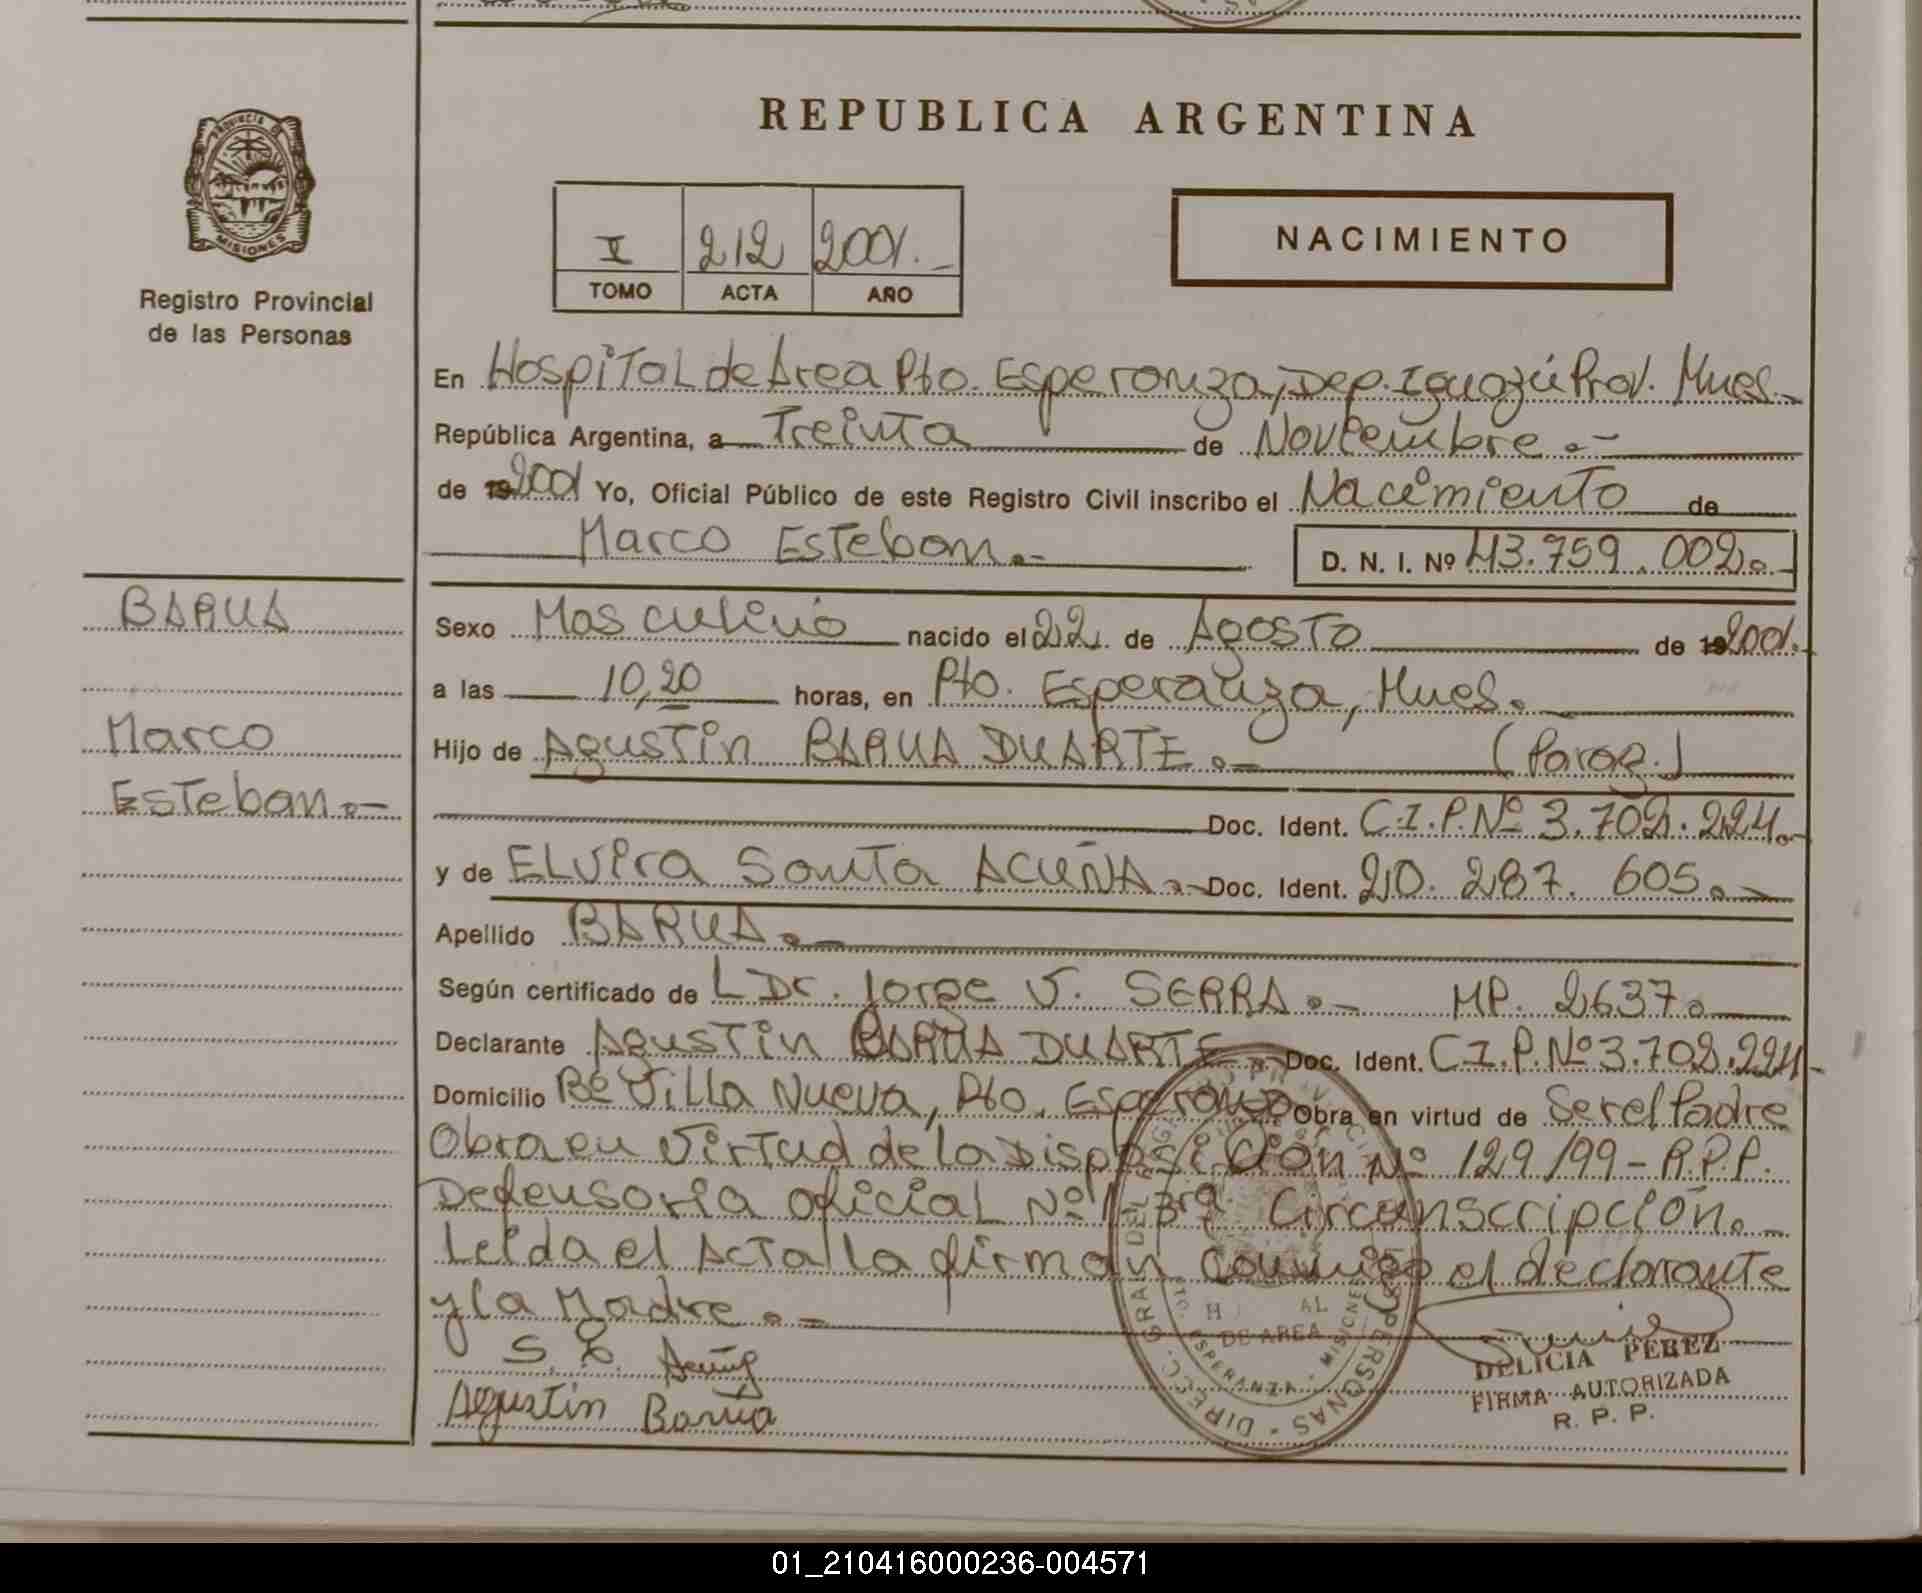 REPUBLICA ARGENTINA
PROVINCIA DE
MISIONES
Registro Provincial
de las Personas
I 212 2001.-
TOMO ACTA AÑO
NACIMIENTO
En Hospital de Area Pto. Esperanza, Dep. Iguazú Prov. Mnes.-
República Argentina, a Treinta de Noviembre.-
de 19 2001 Yo, Oficial Público de este Registro Civil inscribo el Nacimiento de
Marco Esteban.-
D. N. I. Nº 43.759.002.-
BARUA
Marco
Esteban.-
Sexo Masculino nacido el 22 de Agosto de 19 2001.-
a las 10,20 horas, en Pto. Esperanza, Mnes.
Hijo de Agustin BARUA DUARTE.- (Parag.)
Doc. Ident. C.I.P. Nº 3.702.224.-
y de ELvira Santa ACUÑA.- Doc. Ident. 20.287.605.-
Apellido BARUA.-
Según certificado de L Dr. Jorge V. SERRA.- MP. 2637.-
Declarante Agustin BARUA DUARTE Doc. Ident. C.I.P. Nº 3.702.224-
Domicilio Bº Villa Nueva, Pto. Esperanza Obra en virtud de Ser el Padre
Obra en Virtud de la Disposición Nº 129/99 - R.P.P.
Defensoria Oficial Nº 1 3ra Circunscripción.-
Leida el Acta la firman conmigo el declarante
y la Madre.-
S. E. Acuña
Agustin Barua
DELICIA PEREZ
FIRMA AUTORIZADA
R. P. P.
DE AREA
ESPERANZA - MISIONES
01_210416000236-004571